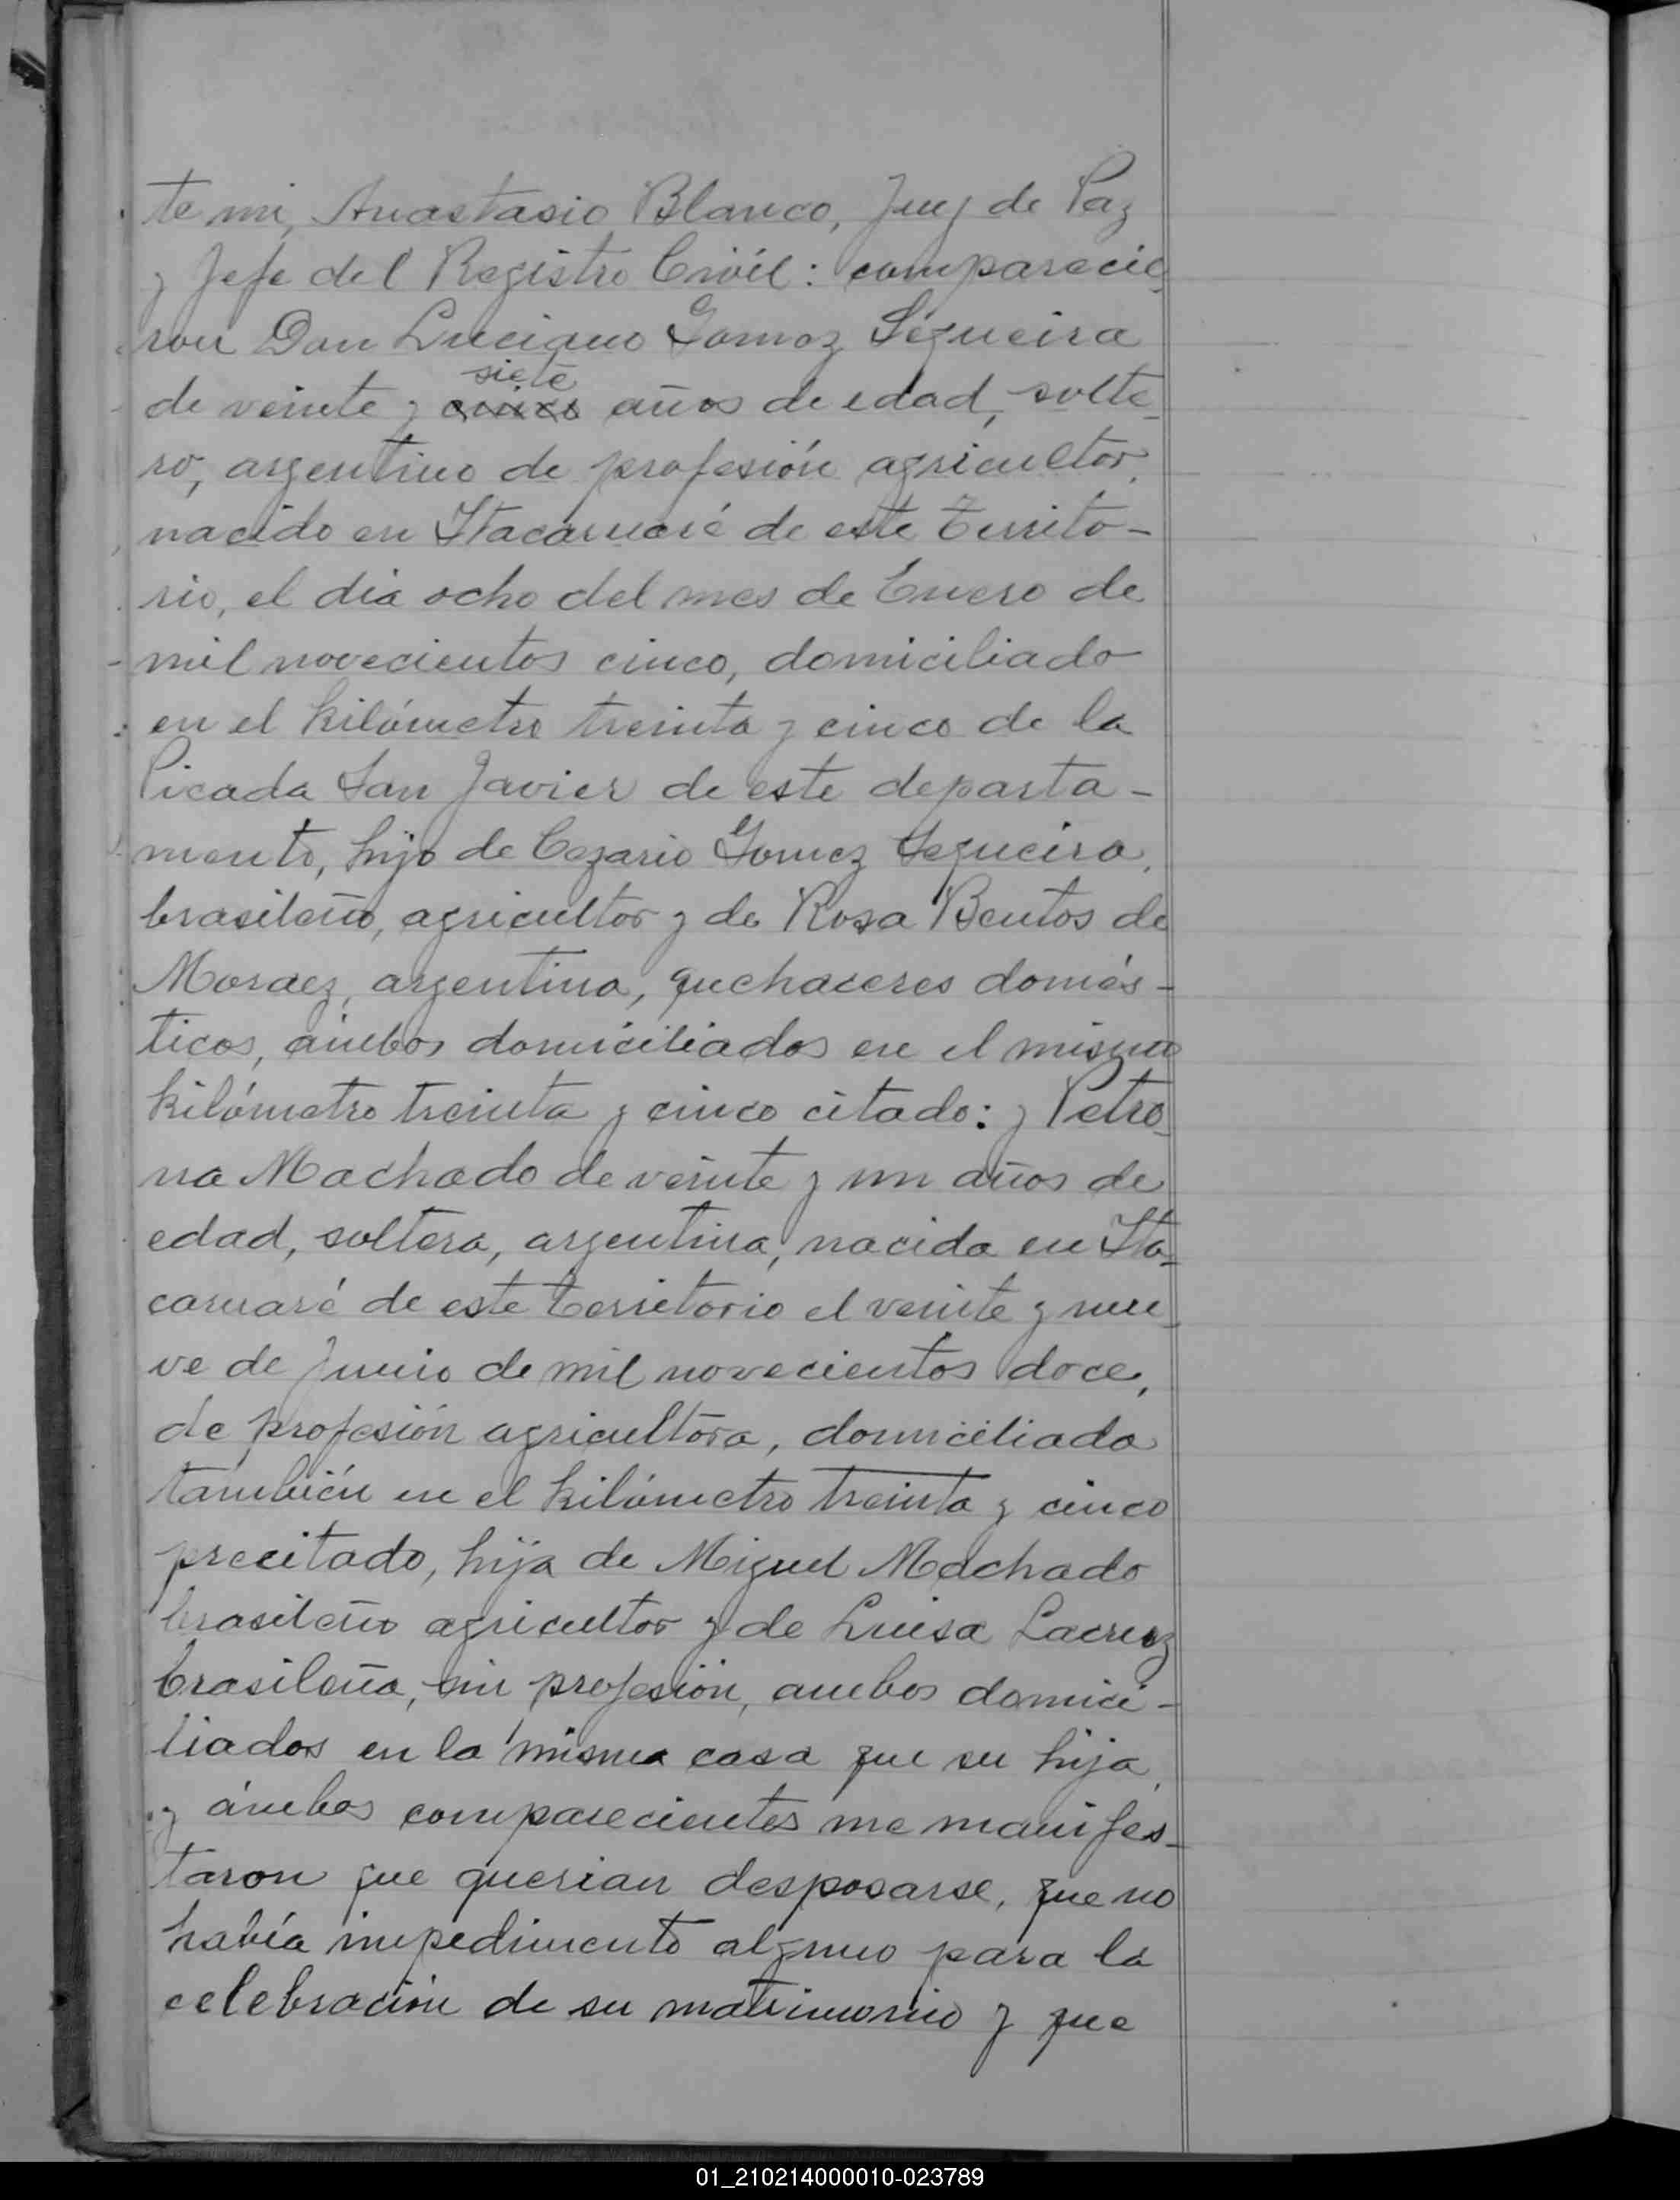 te mi, Anastasio Blanco, Juez de Paz
y Jefe del Registro Civil: comparecie
ron Don Luciano Gomez Sequeira
siete
de veinte y cinco años de edad, solte-
ro, argentino de profesión agricultor,
nacido en Itacaruaré de este Territo-
rio, el dia ocho del mes de Enero de
mil novecientos cinco, domiciliado
en el kilómetro treinta y cinco de la
Picada San Javier de este departa-
mento, hijo de Cezario Gomez Sequeira,
brasileño, agricultor y de Rosa Bentos de
Moraez, argentina, quehaceres domés-
ticos, ambos domiciliados en el mismo
kilómetro treinta y cinco citado: y Petro-
na Machado de veinte y un años de
edad, soltera, argentina, nacida en Ita-
caruaré de este Territorio el veinte y nue-
ve de Junio de mil novecientos doce,
de profesión agricultora, domiciliada
también en el kilómetro treinta y cinco
precitado, hija de Miguel Machado
brasileño agricultor y de Luisa Lacruz
brasileña, sin profesión, ambos domici-
liados en la misma casa que su hija,
y ámbos comparecientes me manifes-
taron que querian desposarse, que no
había impedimento alguno para la
celebración de su matrimonio y que
01_210214000010-023789